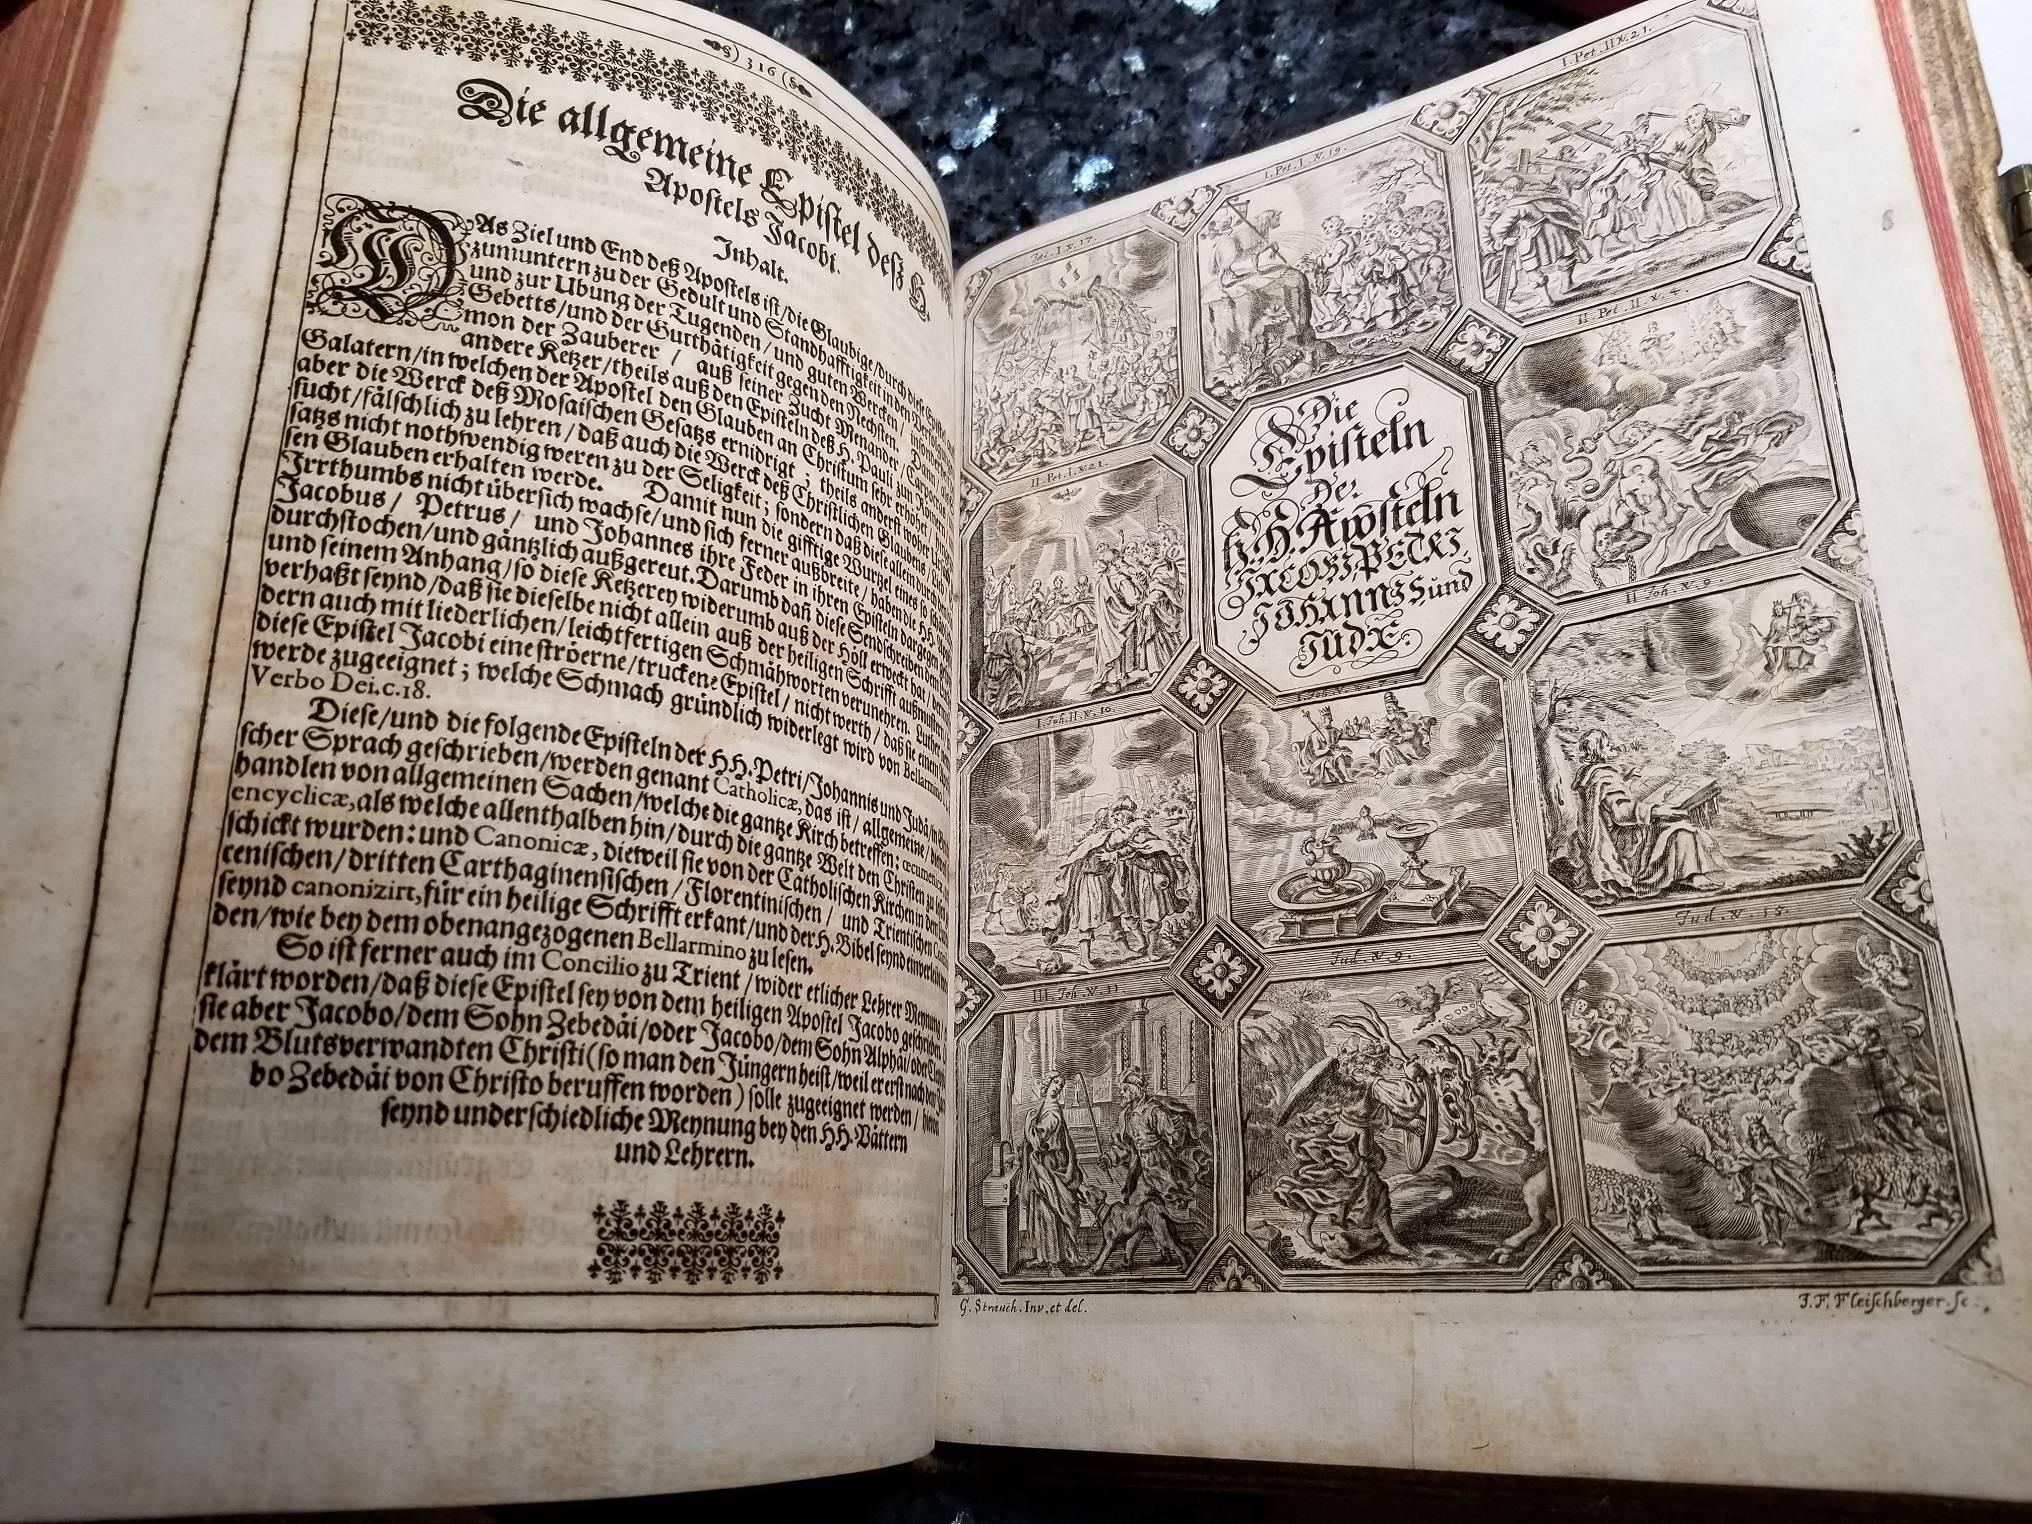 ) 316 (
Die allgemeine Epistel deß H.
Apostels Jacobi.
Inhalt.
DAs Ziel und End deß Apostels ist/die Glaubige/durch diese
zumuntern zu der Gedult und Standhafftigkeit in den
und zur Ubung der Tugenden/und guten Wercken/
Gebetts/und der Gutthätigkeit gegen den Nechsten.
mon der Zauberer/ auß seiner Zucht Menander/
andere Ketzer/theils auß den Episteln deß H. Pauli zun
Galatern/in welchen der Apostel den Glauben an Christum sehr erhöhet/
aber die Werck deß Mosaischen Gesatzs ernidrigt; theils anderst woher
sucht/fälschlich zu lehren/daß auch die Werck deß Christlichen Glaubens/
satzs nicht nothwendig weren zu der Seligkeit; sondern daß diese allein durch
sen Glauben erhalten werde. Damit nun die gifftige Wurtzel eines so
Irrthumbs nicht übersich wachse/und sich ferner außbreite/haben die HH.
Jacobus/ Petrus/ und Johannes ihre Feder in ihren Episteln dargegen
durchstochen/und gäntzlich außgereut. Darumb dañ diese Sendschreiben dem
und seinem Anhang/so diese Ketzerey widerumb auß der Höll erweckt hat/
verhaßt seynd/daß sie dieselbe nicht allein auß der heiligen Schrifft
dern auch mit liederlichen/leichtfertigen Schmähworten verunehren.
diese Epistel Jacobi eine ströerne/truckene Epistel/nicht werth/daß sie einem
werde zugeeignet; welche Schmach gründlich widerlegt wird von
Verbo Dei.c.18.
Diese/und die folgende Episteln der HH. Petri/Johannis und Judä/
scher Sprach geschrieben/werden genant Catholicæ, das ist/allgemeine/
handlen von allgemeinen Sachen/welche die gantze Kirch betreffen:
encyclicæ, als welche allenthalben hin/durch die gantze Welt den Christen zu
schickt wurden: und Canonicæ, dieweil sie von der Catholischen Kirchen in dem
cenischen/dritten Carthaginensischen/Florentinischen/ und Trientischen
seynd canonizirt, für ein heilige Schrifft erkant/und der H. Bibel seynd
den/wie bey dem obenangezogenen Bellarmino zu lesen.
So ist ferner auch im Concilio zu Trient/wider etlicher Lehrer Meynung/
klärt worden/daß diese Epistel sey von dem heiligen Apostel Jacobo
sie aber Jacobo/dem Sohn Zebedäi/oder Jacobo/dem Sohn Alphäi/oder
dem Blutsverwandten Christi (so man den Jüngern heist/weil er erst nach dem
bo Zebedäi von Christo beruffen worden) solle zugeeignet werden/
seynd underschiedliche Meynung bey den HH. Vättern
und Lehrern.
Jac. I. V. 17.
I. Pet. I. V. 19.
I. Pet. II V. 21.
II. Pet. I. V. 21.
II. Pet. II. V. 4.
Die
Episteln
Der
H. H. Aposteln
JACOBI, PETRI,
JOHANNIS, und
JUDÆ.
I. Joh. II. V. 10.
I. Joh. V. V. 7.
II Joh. V. 9.
III. Joh. V. 11
Jud. V. 9.
Jud. V. 15.
G. Strauch. Inv. et del.
J. F. Fleischberger. sc: